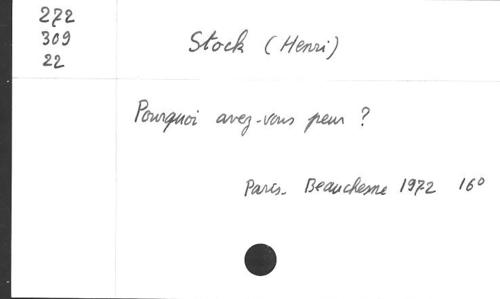 272
309
22
Stock (Henri)
Pourquoi avez-vous peur ?
Paris- Beauchesne 1972 16°